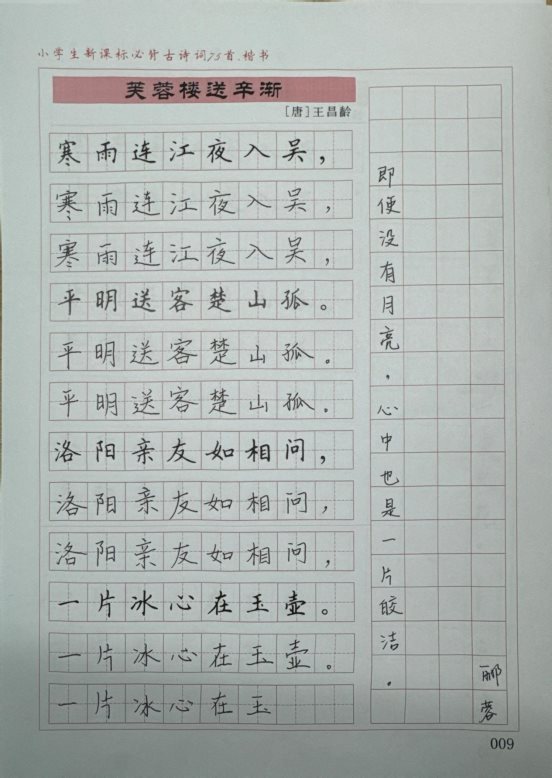 小学生新课标必背古诗词75首.楷书
芙蓉楼送辛渐
[唐]王昌龄
寒雨连江夜入吴，
寒雨连江夜入吴，
寒雨连江夜入吴，
平明送客楚山孤。
平明送客楚山孤。
平明送客楚山孤。
洛阳亲友如相问，
洛阳亲友如相问，
洛阳亲友如相问，
一片冰心在玉壶。
一片冰心在玉壶。
一片冰心在玉
即便没有月亮，心中也是一片皎洁。
郦蓉
009